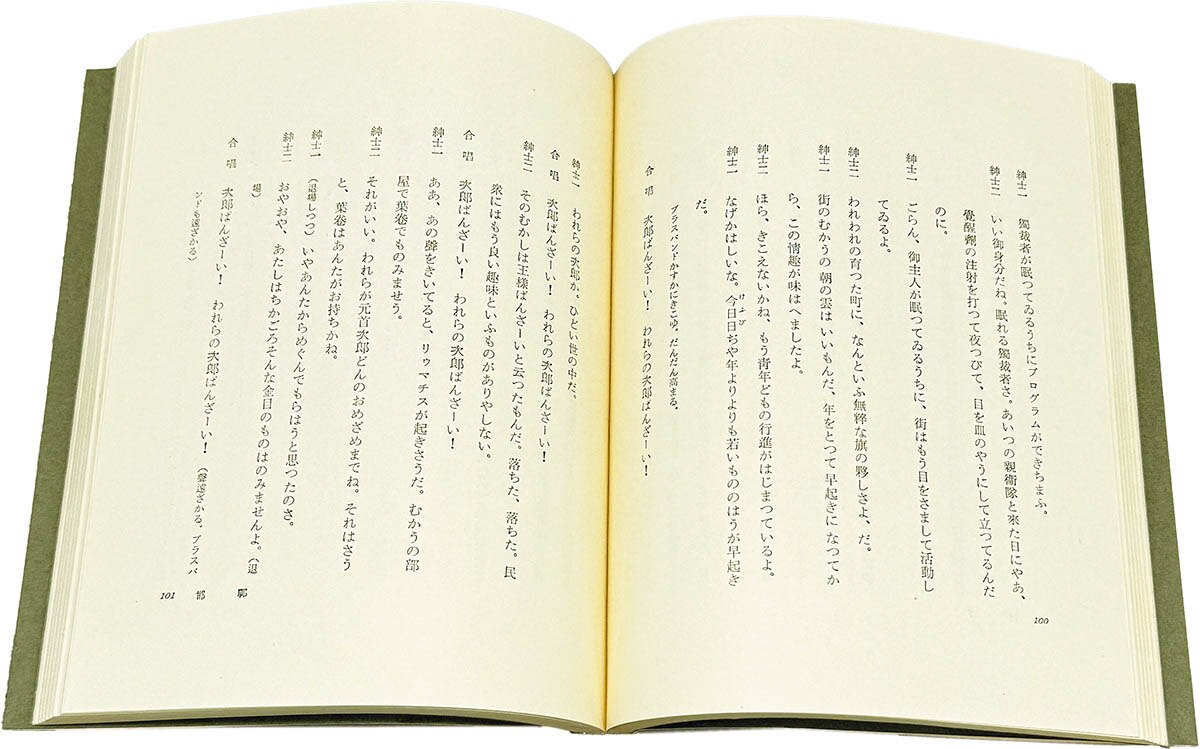 紳士一　獨裁者が眠つてゐるうちにプログラムができちまふ。
紳士二　いい御身分だね。眠れる獨裁者さ。あいつの親衛隊と來た日にやあ、
覺醒劑の注射を打つて夜つぴて、目を皿のやうにして立つてるんだ
のに。
紳士一　ごらん、御主人が眠つてゐるうちに、街はもう目をさまして活動し
てゐるよ。
紳士二　われわれの育つた町に、なんといふ無粹な旗の夥しさよ、だ。
紳士一　街のむかうの朝の雲はいいもんだ、年をとつて早起きになつてか
ら、この情趣が味はへましたよ。
紳士二　ほら、きこえないかね、もう靑年どもの行進がはじまつているよ。
紳士一　なげかはしいな。今日日ぢや年よりよりも若いもののはうが早起き
けふび
だ。
ブラスバンドかすかにきこゆ、だんだん高まる。
合　唱　次郎ばんざーい！　われらの次郎ばんざーい！
100
紳士一　われらの次郎か、ひどい世の中だ。
合　唱　次郎ばんざーい！　われらの次郎ばんざーい！
紳士二　そのむかしは王樣ばんざーいと云つたもんだ。落ちた、落ちた。民
衆にはもう良い趣味といふものがありやしない。
合　唱　次郎ばんざーい！　われらの次郎ばんざーい！
紳士一　ああ、あの聲をきいてると、リウマチスが起きさうだ。むかうの部
屋で葉卷でものみませう。
紳士二　それがいい。われらが元首次郎どんのおめざめまでね。それはさう
と、葉卷はあんたがお持ちかね。
紳士一　（退場しつつ）いやあんたからめぐんでもらはうと思つたのさ。
紳士二　おやおや、あたしはちかごろそんな金目のものはのみませんよ。（退
場）
合　唱　次郎ばんざーい！　われらの次郎ばんざーい！　（聲遠ざかる。ブラスバ
ンドも遠ざかる）
邯鄲
101